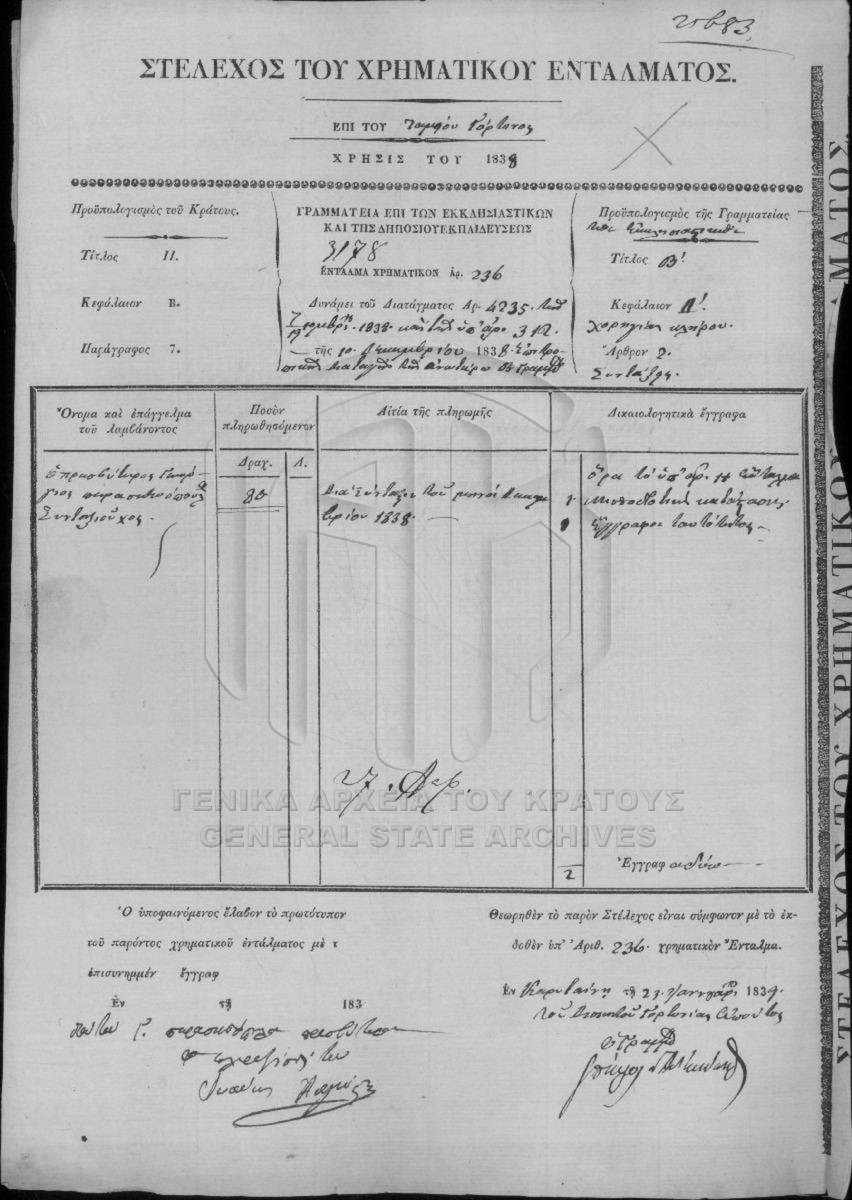 ΣΤΕΛΕΧΟΣ ΤΟΥ ΧΡΗΜΑΤΙΚΟΥ ΕΝΤΑΛΜΑΤΟΣ.
ΕΠΙ ΤΟΥ Ταμείου Γόρτυνος
ΧΡΗΣΙΣ ΤΟΥ 1838
Προϋπολογισμὸς τοῦ Κράτους.
Τίτλος II.
Κεφάλαιον Β.
Παράγραφος 7.
ΓΡΑΜΜΑΤΕΙΑ ΕΠΙ ΤΩΝ ΕΚΚΛΗΣΙΑΣΤΙΚΩΝ
ΚΑΙ ΤΗΣ ΔΗΜΟΣΙΟΥ ΕΚΠΑΙΔΕΥΣΕΩΣ
3178
ΕΝΤΑΛΜΑ ΧΡΗΜΑΤΙΚΟΝ Ἀρ. 236
Δυνάμει τοῦ Διατάγματος Ἀρ. 4235
1838 καὶ τῆς ὑπ' ἀρ. 312
τῆς 10 Δεκεμβρίου 1838
Προϋπολογισμὸς τῆς Γραμματείας
Τίτλος Β'
Κεφάλαιον Α'
χορηγίας κλήρου.
Ἄρθρον 2.
Συντάξεις.
Ὄνομα καὶ ἐπάγγελμα
τοῦ λαμβάνοντος
Ποσὸν
πληρωθησόμενον
Δραχ. Λ.
Αἰτία τῆς πληρωμῆς
Δικαιολογητικὰ ἔγγραφα
ὁ πρεσβύτερος Γεώρ-
γιος
Συνταξιοῦχος.
80
Διὰ σύνταξιν τοῦ μηνὸς Δεκεμ
βρίου 1838.
ὅρα τὸ ὑπ' ἀρ.
1 Μισθοδοτικὴ κατάστασις
1 ἔγγραφον ταυτότητος
2 Ἔγγραφα δύο
ΓΕΝΙΚΑ ΑΡΧΕΙΑ ΤΟΥ ΚΡΑΤΟΥΣ
GENERAL STATE ARCHIVES
Ὁ ὑποφαινόμενος ἔλαβον τὸ πρωτότυπον
τοῦ παρόντος χρηματικοῦ ἐντάλματος μὲ τ
ἐπισυνημμέν ἔγγραφ
Ἐν τῇ 183
Θεωρηθὲν τὸ παρὸν Στέλεχος εἶναι σύμφωνον μὲ τὸ ἐκ-
δοθὲν ὑπ' Ἀριθ. 236 χρηματικὸν Ἔνταλμα.
Ἐν Καρυταίνῃ τῇ 23 Ἰανουαρίου 1839
τοῦ Διοικητοῦ Γορτυνίας ἀπόντος
ὁ Γραμμ
ΣΤΕΛΕΧΟΣ ΤΟΥ ΧΡΗΜΑΤΙΚΟΥ